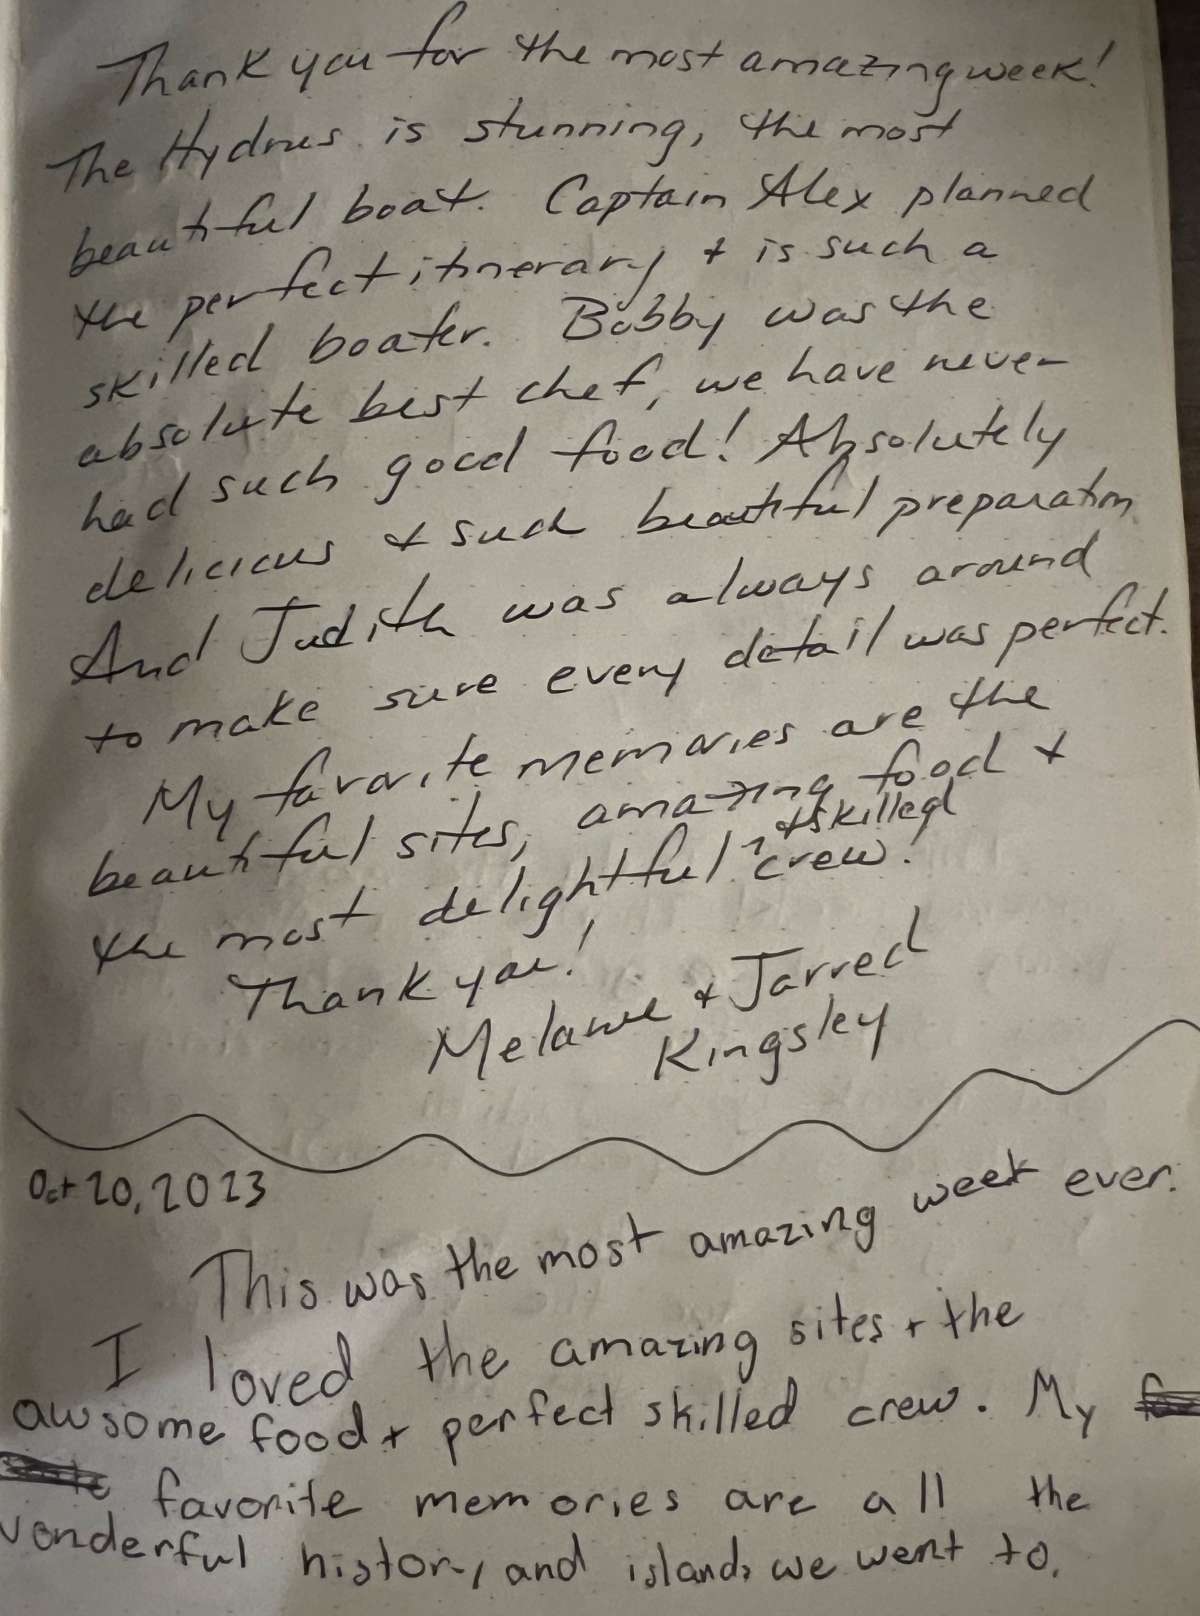 Thank you for the most amazing week!
The Hydrus is stunning, the most
beautiful boat. Captain Alex planned
the perfect itinerary + is such a
skilled boater. Bobby was the
absolute best chef, we have never
had such good food! Absolutely
delicious + such beautiful preparation
And Judith was always around
to make sure every detail was perfect.
My favorite memories are the
beautiful sites, amazing food +
+ skilled
the most delightful crew!
Thank you!
Melanie + Jarred
Kingsley
Oct 20, 2023
This was the most amazing week ever.
I loved the amazing sites + the
awsome food + perfect skilled crew. My
favorite memories are all the
wonderful history, and islands we went to.